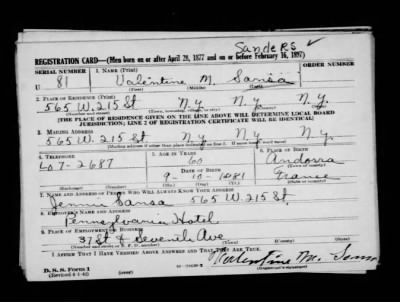 Sanders ✓
REGISTRATION CARD—(Men born on or after April 28, 1877 and on or before February 16, 1897)
SERIAL NUMBER 1. NAME (Print) ORDER NUMBER
U 81 Valentine M. Sansa
(First) (Middle) (Last)
2. PLACE OF RESIDENCE (Print)
565 W. 215 St N.Y. N.Y. N.Y.
(Number and street) (Town, township, village, or city) (County) (State)
[THE PLACE OF RESIDENCE GIVEN ON THE LINE ABOVE WILL DETERMINE LOCAL BOARD
JURISDICTION; LINE 2 OF REGISTRATION CERTIFICATE WILL BE IDENTICAL]
3. MAILING ADDRESS
565 W. 215 St N.Y. N.Y. N.Y.
[Mailing address if other than place indicated on line 2. If same insert word same]
4. TELEPHONE 5. AGE IN YEARS 6. PLACE OF BIRTH
Lo 7-2687 60 Andorra
DATE OF BIRTH (Town or county)
9-10-1881 France
(Exchange) (Number) (Mo.) (Day) (Yr.) (State or country)
7. NAME AND ADDRESS OF PERSON WHO WILL ALWAYS KNOW YOUR ADDRESS
Jennie Sansa 565 W. 215 St.
8. EMPLOYER'S NAME AND ADDRESS
Pennsylvania Hotel
9. PLACE OF EMPLOYMENT OR BUSINESS
37 St & Seventh Ave
(Number and street or R. F. D. number)
I AFFIRM THAT I HAVE VERIFIED ABOVE ANSWERS AND THAT THEY ARE TRUE.
D. S. S. Form 1 Valentine M.
(Revised 4-1-42) (Registrant's signature)